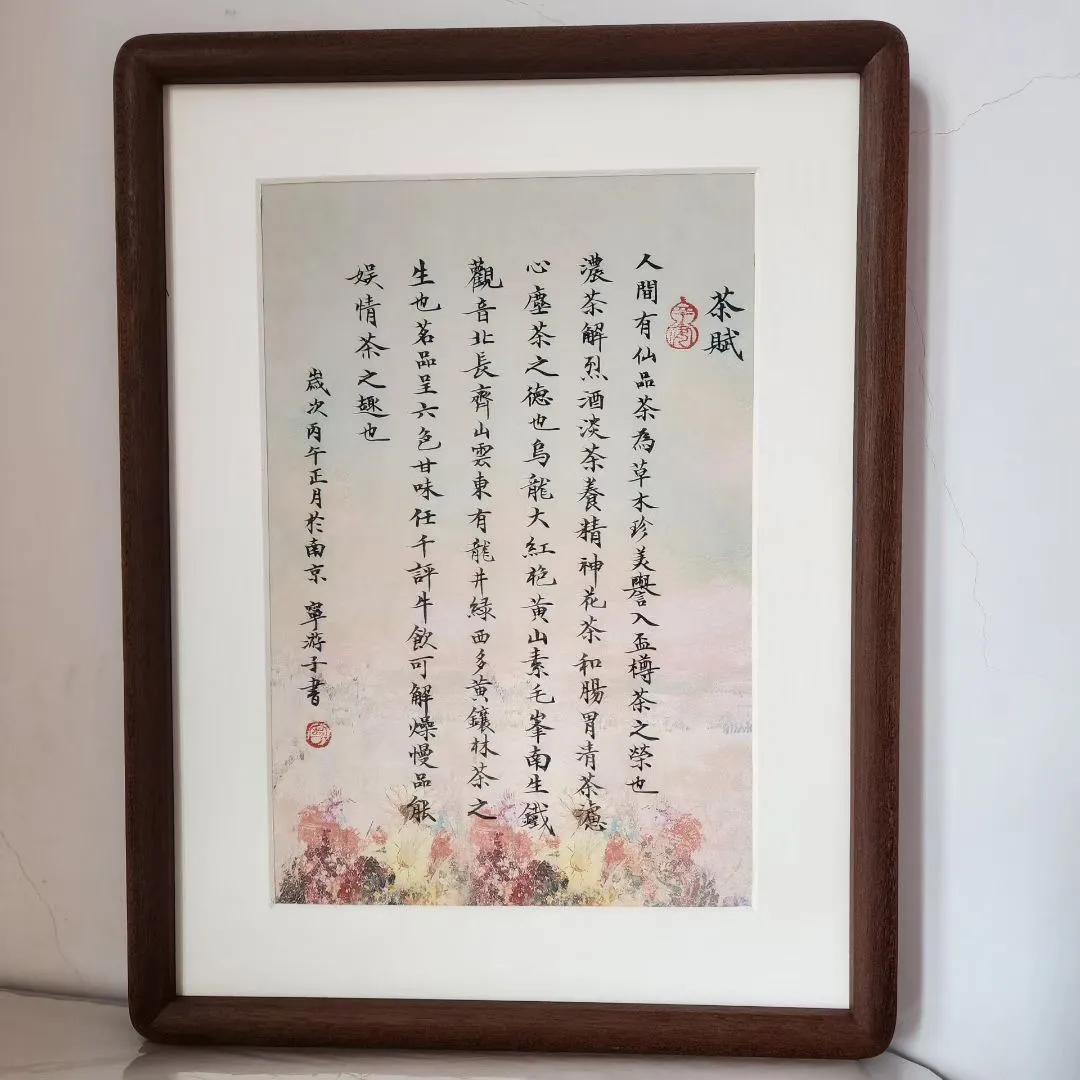 茶賦
人間有仙品茶為草木珍美譽入盃樽茶之榮也
濃茶解烈酒淡茶養精神花茶和腸胃清茶濾
心塵茶之德也烏龍大紅袍黃山素毛峯南生鐵
觀音北長齊山雲東有龍井綠西多黃鑲林茶之
生也茗品呈六色甘味任千評牛飲可解燥慢品能
娛情茶之趣也
歲次丙午正月於南京 寧游子書